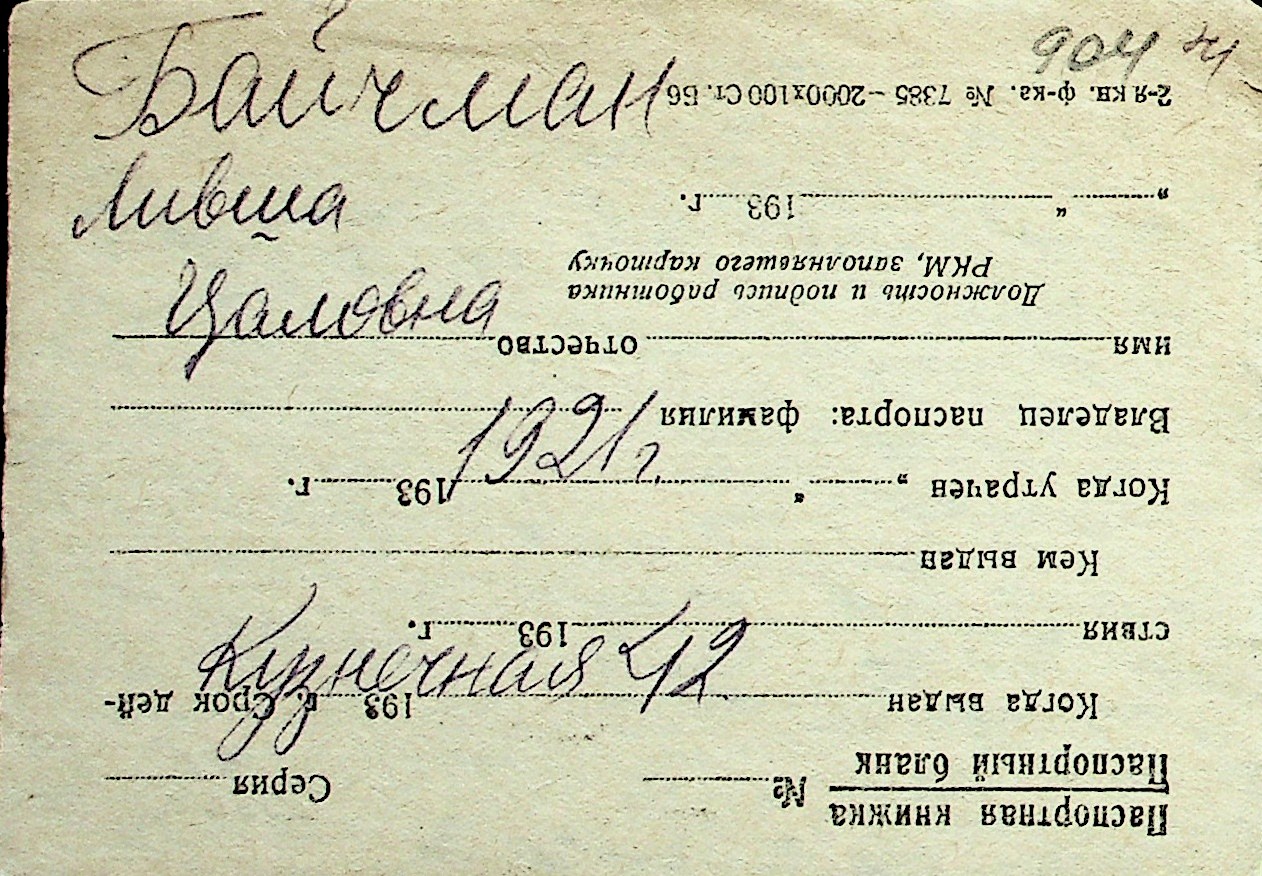 904
Байчман
Лившa
Цаловна
1921 г.
Кузнечная 42
Паспортная книжка
Паспортный бланк
№ Серия
Когда выдан 193 г. Срок дей-
ствия 193 г.
Кем выдан
Когда утрачен „ “ 193 г.
Владелец паспорта: фамилия
имя отчество
Должность и подпись работника
РКМ, заполнявшего карточку
„ “ 193 г.
2-я кн. ф-ка. № 7385 – 2000х100 Ст. Б6